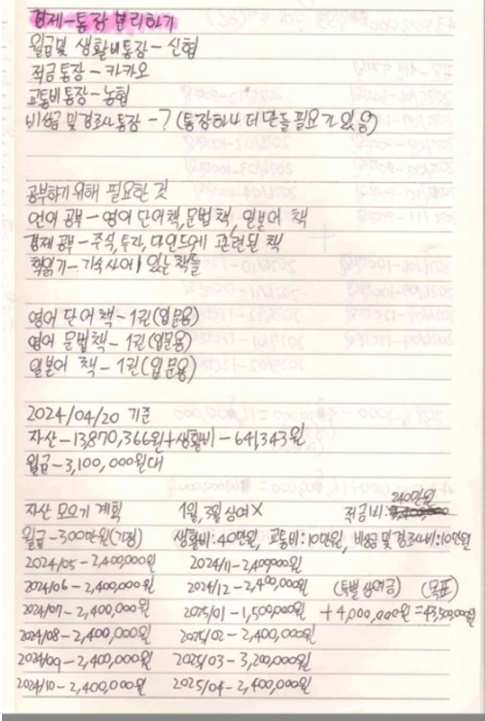 경제-통장 분리하기
월급및 생활비통장-신협
적금통장-카카오
교통비통장-농협
비상금및경조사통장-?(통장하나 더 만들 필요가 있음)
공부하기 위해 필요한 것
언어 공부-영어 단어책,문법책,일본어 책
경제공부-주식,투자,마인드에 관련된 책
책읽기-기숙사에 있는책들
영어 단어책-1권(입문용)
영어 문법책-1권(입문용)
일본어 책-1권(입문용)
2024/04/20 기준
자산-13,870,366원+생활비-641,343원
월급-3,100,000원대
240만원
자산 모으기 계획 1월, 상여X 적금비:
월급-300만원(가정) 생활비:40만원, 교통비:10만원, 비상금및경조사비:10만원
2024/05-2,400,000원 2024/11-2,400,000원
2024/06-2,400,000원 2024/12-2,400,000원 (특별상여금) (목표)
2024/07-2,400,000원 2025/01-1,500,000원 +4,000,000원=43,500,000원
2024/08-2,400,000원 2025/02-2,400,000원
2024/09-2,400,000원 2025/03-3,200,000원
2024/10-2,400,000원 2025/04-2,400,000원